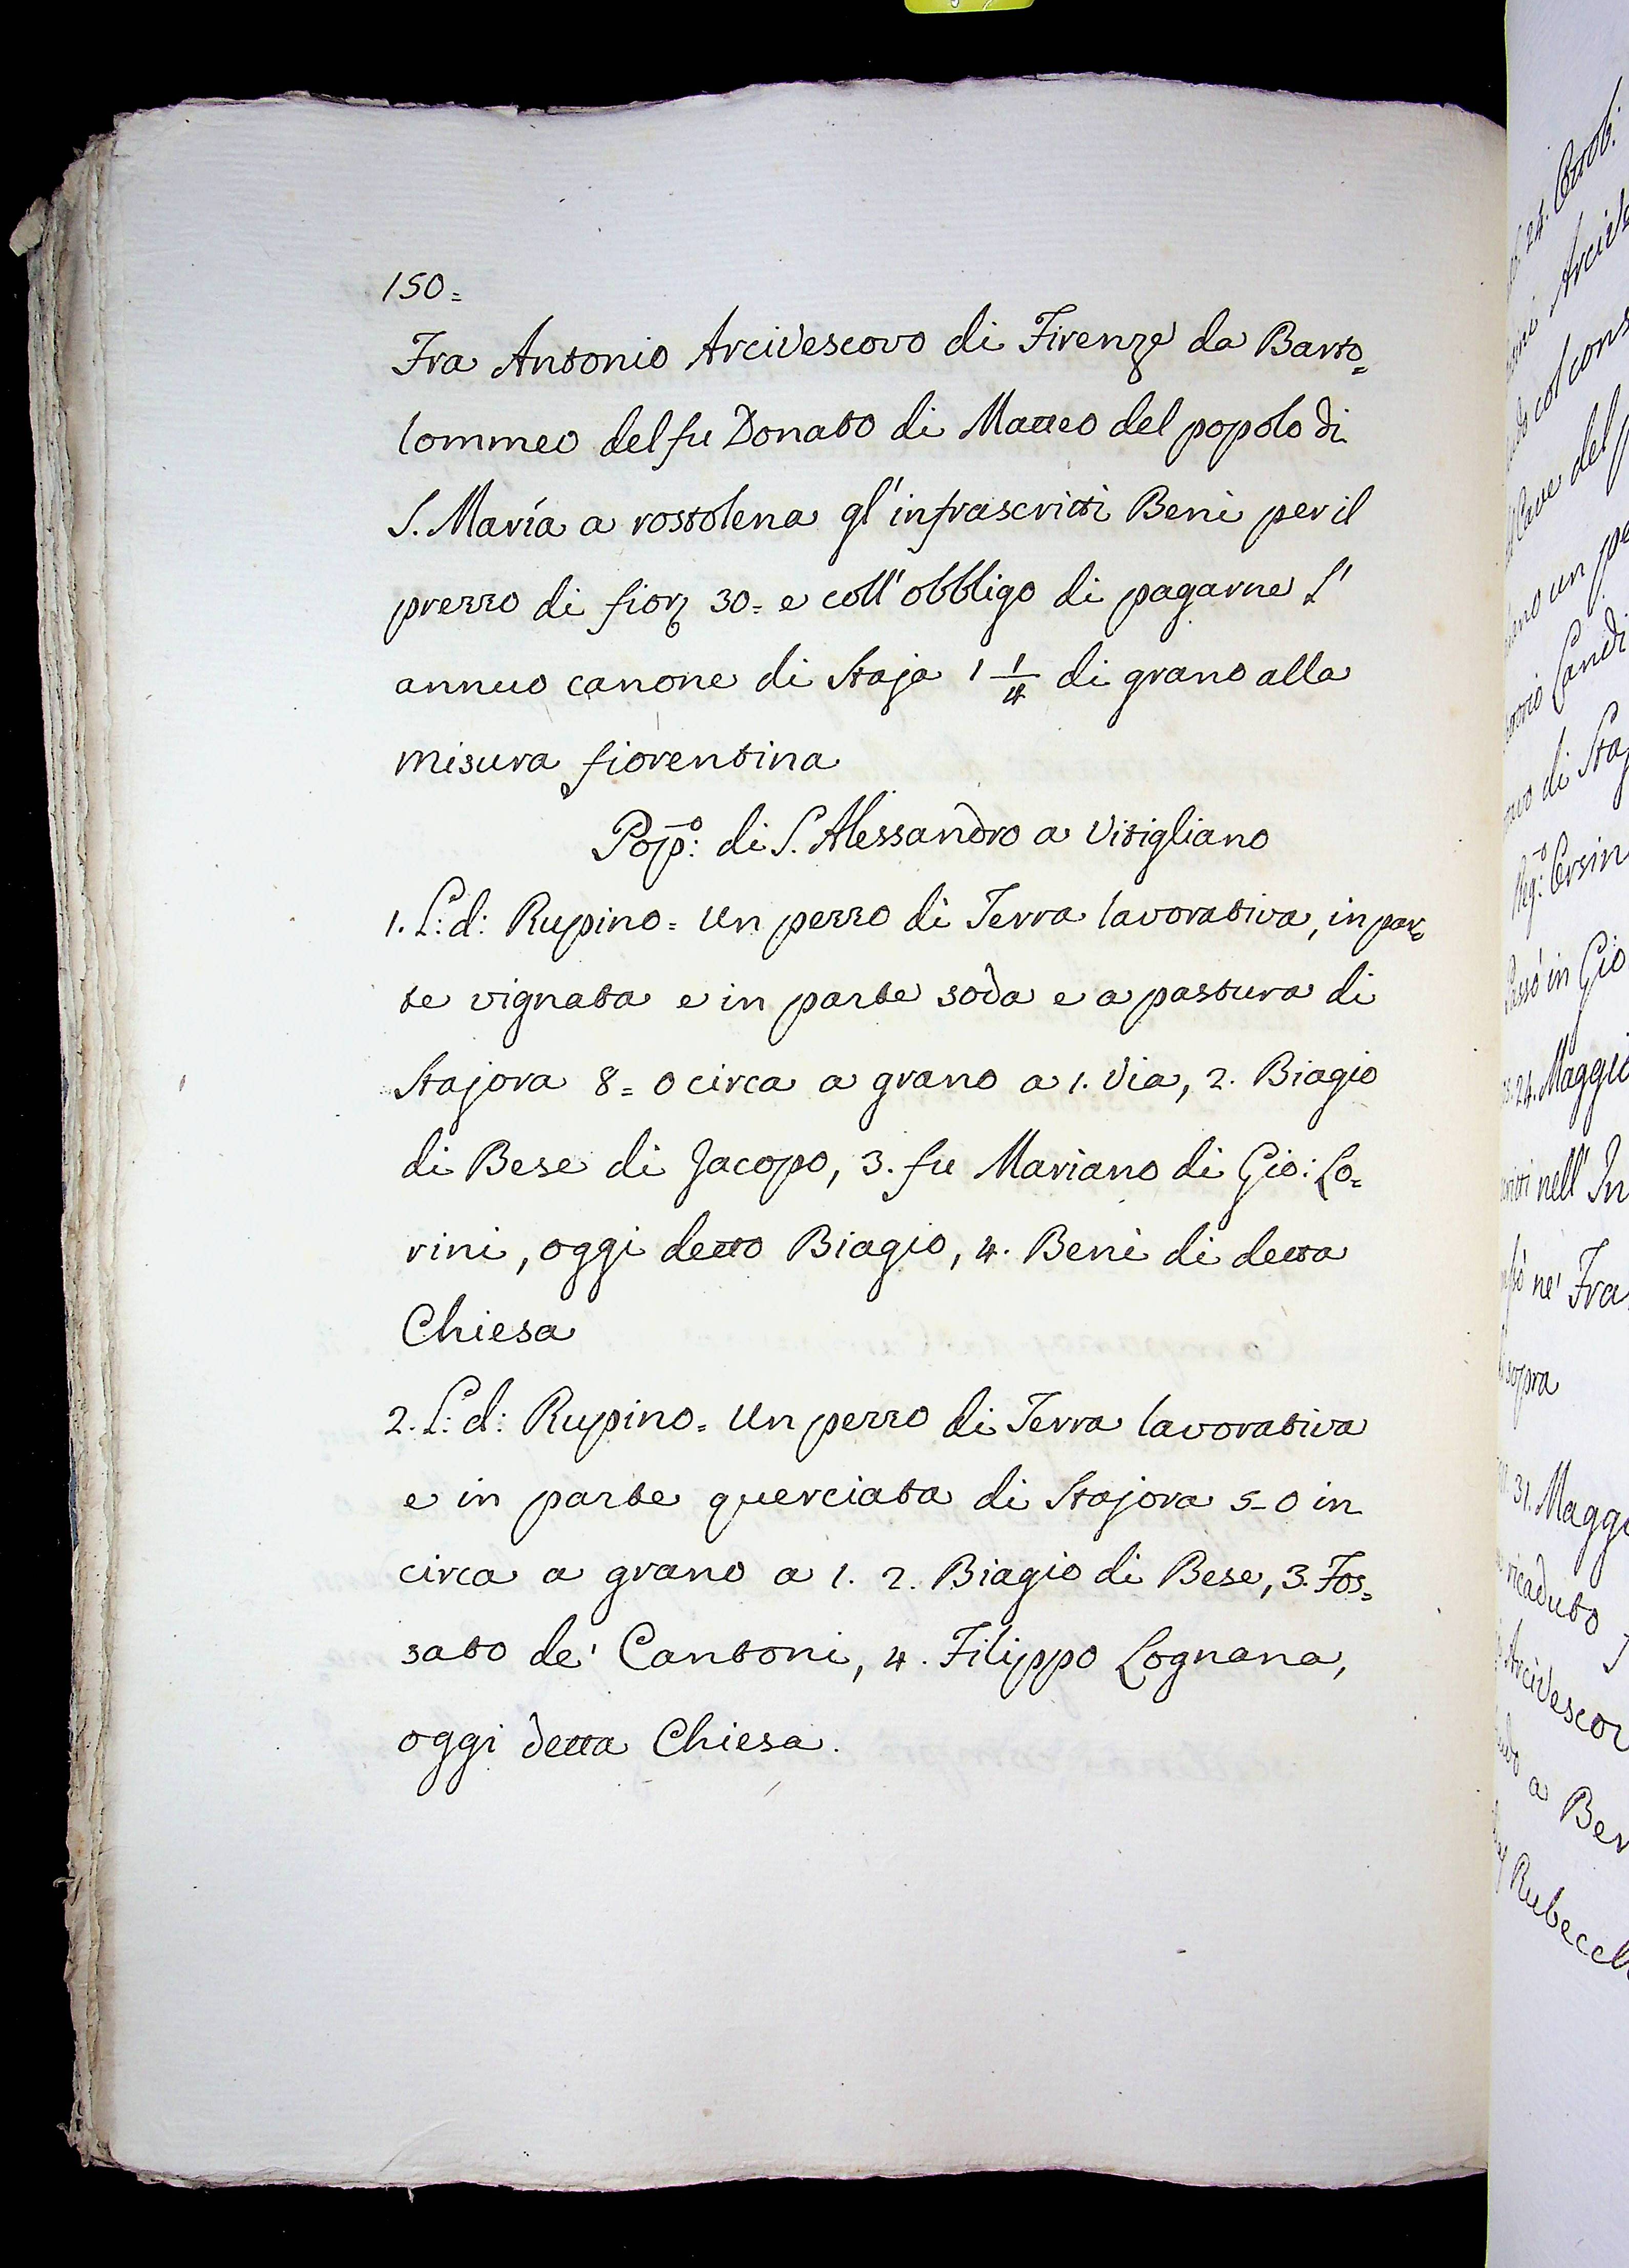 150=
Fra Antonio Arcivescovo di Firenze da Barto=
lommeo del fu Donato di Matteo del popolo di
S. Maria a rostolena gl'infrascritti Beni per il
prezzo di fior 30= e coll'obbligo di pagarne l'
annuo canone di Staja 1 1/4 di grano alla
misura fiorentina
Pop:o di S. Alessandro a Vitigliano
1. L: d: Rupino= Un pezzo di Terra lavorativa, in par=
te vignata e in parte soda e a pastura di
Stajora 8=0 circa a grano a 1. Via, 2. Biagio
di Bese di Jacopo, 3. fu Mariano di Gio: Lo=
rini, oggi detto Biagio, 4. Beni di detta
Chiesa
2. L: d: Rupino= Un pezzo di Terra lavorativa
e in parte querciata di Stajora 5-0 in
circa a grano a 1. 2. Biagio di Bese, 3. Fos=
sato de' Cantoni, 4. Filippo Lognana,
oggi detta Chiesa.
24. Ottob:
col cons
del p
un pe
di Staj
in Gio
24. Maggio
nell' In
ne' Fra
sopra
31. Maggi
ricaduto
Arcivescov
a Ber
Rubecch